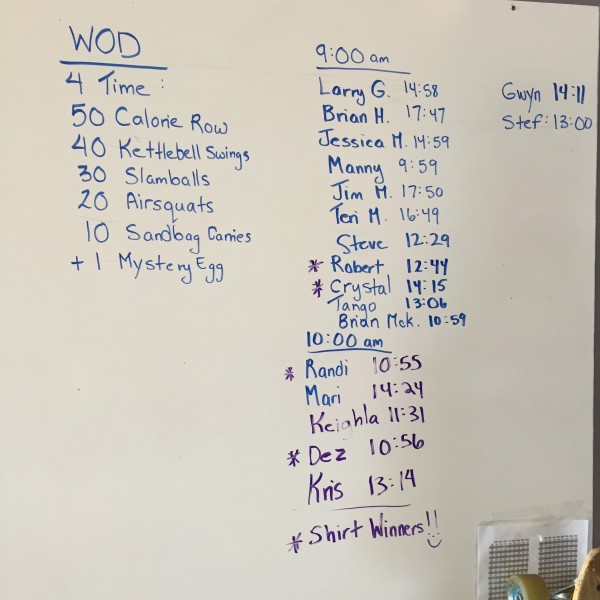 WOD
4 Time:
50 Calorie Row
40 Kettlebell Swings
30 Slamballs
20 Airsquats
10 Sandbag Carries
+1 Mystery Egg
9:00 am
Larry G. 14:58
Brian H. 17:47
Jessica M. 14:59
Manny 9:59
Jim M. 17:50
Teri M. 16:49
Steve 12:29
* Robert 12:44
* Crystal 14:15
Tango 13:06
Brian McK. 10:59
10:00 am
* Randi 10:55
Mari 14:24
Keighla 11:31
* Dez 10:56
Kris 13:14
* Shirt Winners!!
Gwyn 14:11
Stef: 13:00